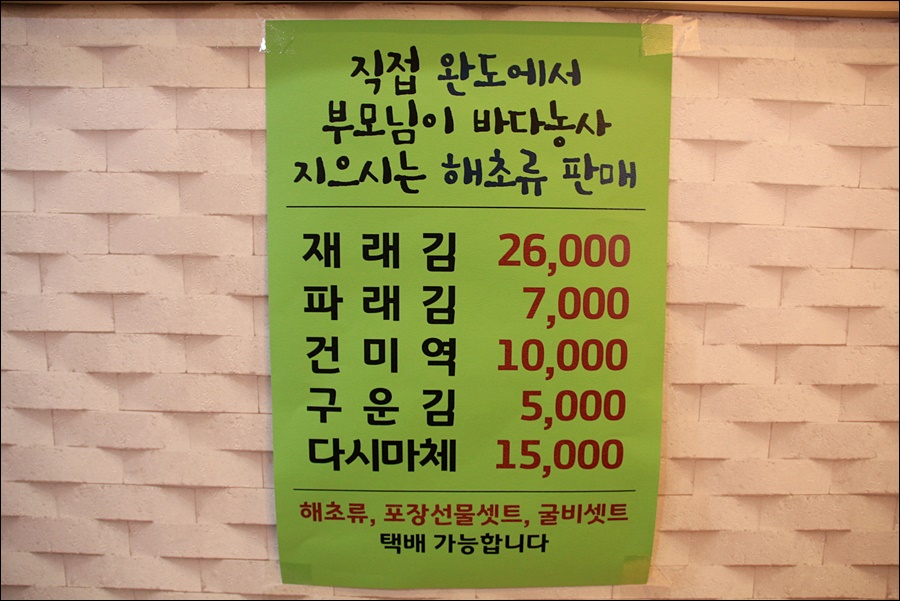 직접 완도에서
부모님이 바다농사
지으시는 해초류 판매
재래김 26,000
파래김 7,000
건미역 10,000
구운김 5,000
다시마체 15,000
해초류, 포장선물셋트, 굴비셋트
택배 가능합니다